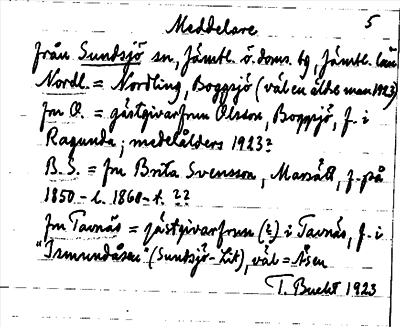 Meddelare 5
från Sundsjö sn, Jämtl. ö. doms. tg, Jämtl. län
Nordl. = Nordling, Boggsjö (väl en äldre man 1923)
fru O. = gästgivarfrun Olsson, Boggsjö, f. i
Ragunda; medelålders 1923?
B.S. = fru Brita Svensson, Marsätt, f. på
1850-t. 1860-t. ??
fru Tavnäs = gästgivarfrun (?) i Tavnäs, f. i
"Ismundåsen" (Sundsjö-Lit), väl = Åsen
T. Bucht 1923